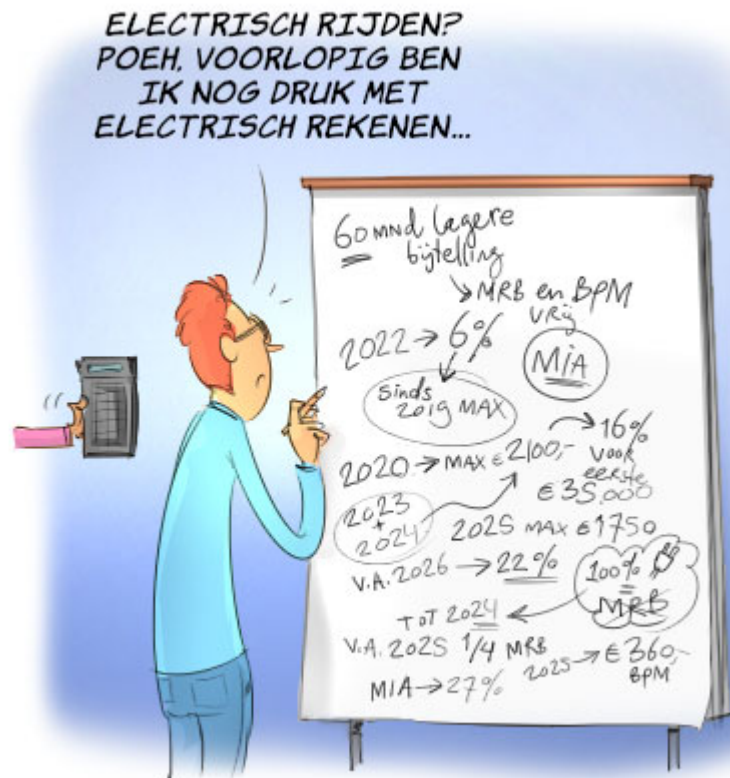 ELECTRISCH RIJDEN?
POEH, VOORLOPIG BEN
IK NOG DRUK MET
ELECTRISCH REKENEN...
60 MND lagere
bijtelling
↘ MRB en BPM
vrij
2022 → 6%
MIA
sinds
2019 MAX
2020 → MAX € 2100,-
→ 16%
voor
eerste
€ 35.000
2023
+
2024
2025 MAX € 1750
V.A. 2026 → 22%
100%
MRB
TOT 2024
V.A. 2025 1/4 MRB
2025 → € 360,-
BPM
MIA → 27%